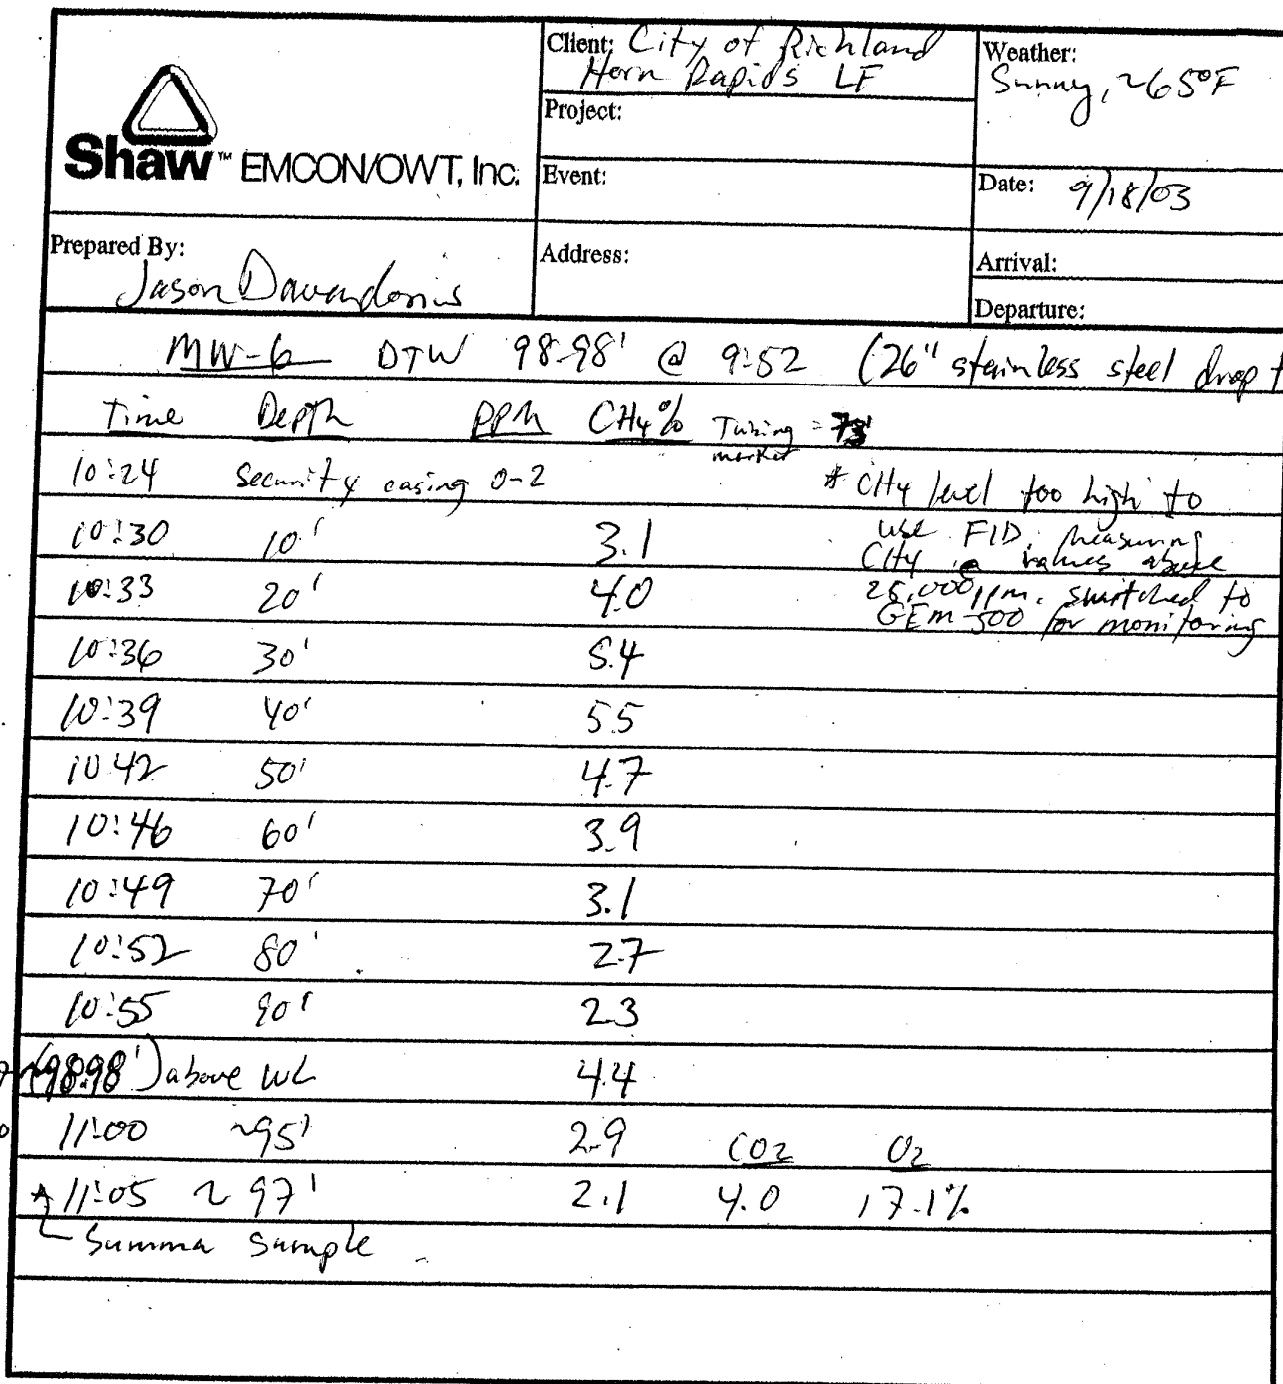 Shaw™ EMCON/OWT, Inc.
Client: City of Richland
Horn Rapids LF
Weather:
Sunny, ~65°F
Project:
Event:
Date: 9/18/03
Prepared By:
Jason
Address:
Arrival:
Departure:
MW-6 DTW 98.98' @ 9:52 (26" stainless steel drop t
Time Depth PPM CH4% Tubing marker =
10:24 Security casing 0-2
* CH4 level too high to
use FID. measuring
CH4 @ values above
25,000 ppm. switched to
GEM-500 for monitoring
10:30 10' 3.1
10:33 20' 4.0
10:36 30' 5.4
10:39 40' 5.5
10:42 50' 4.7
10:46 60' 3.9
10:49 70' 3.1
10:52 80' 2.7
10:55 90' 2.3
(98.98') above WL 4.4
11:00 ~95' 2.9 CO2 O2
* 11:05 ~97' 2.1 4.0 17.1%
Summa Sample